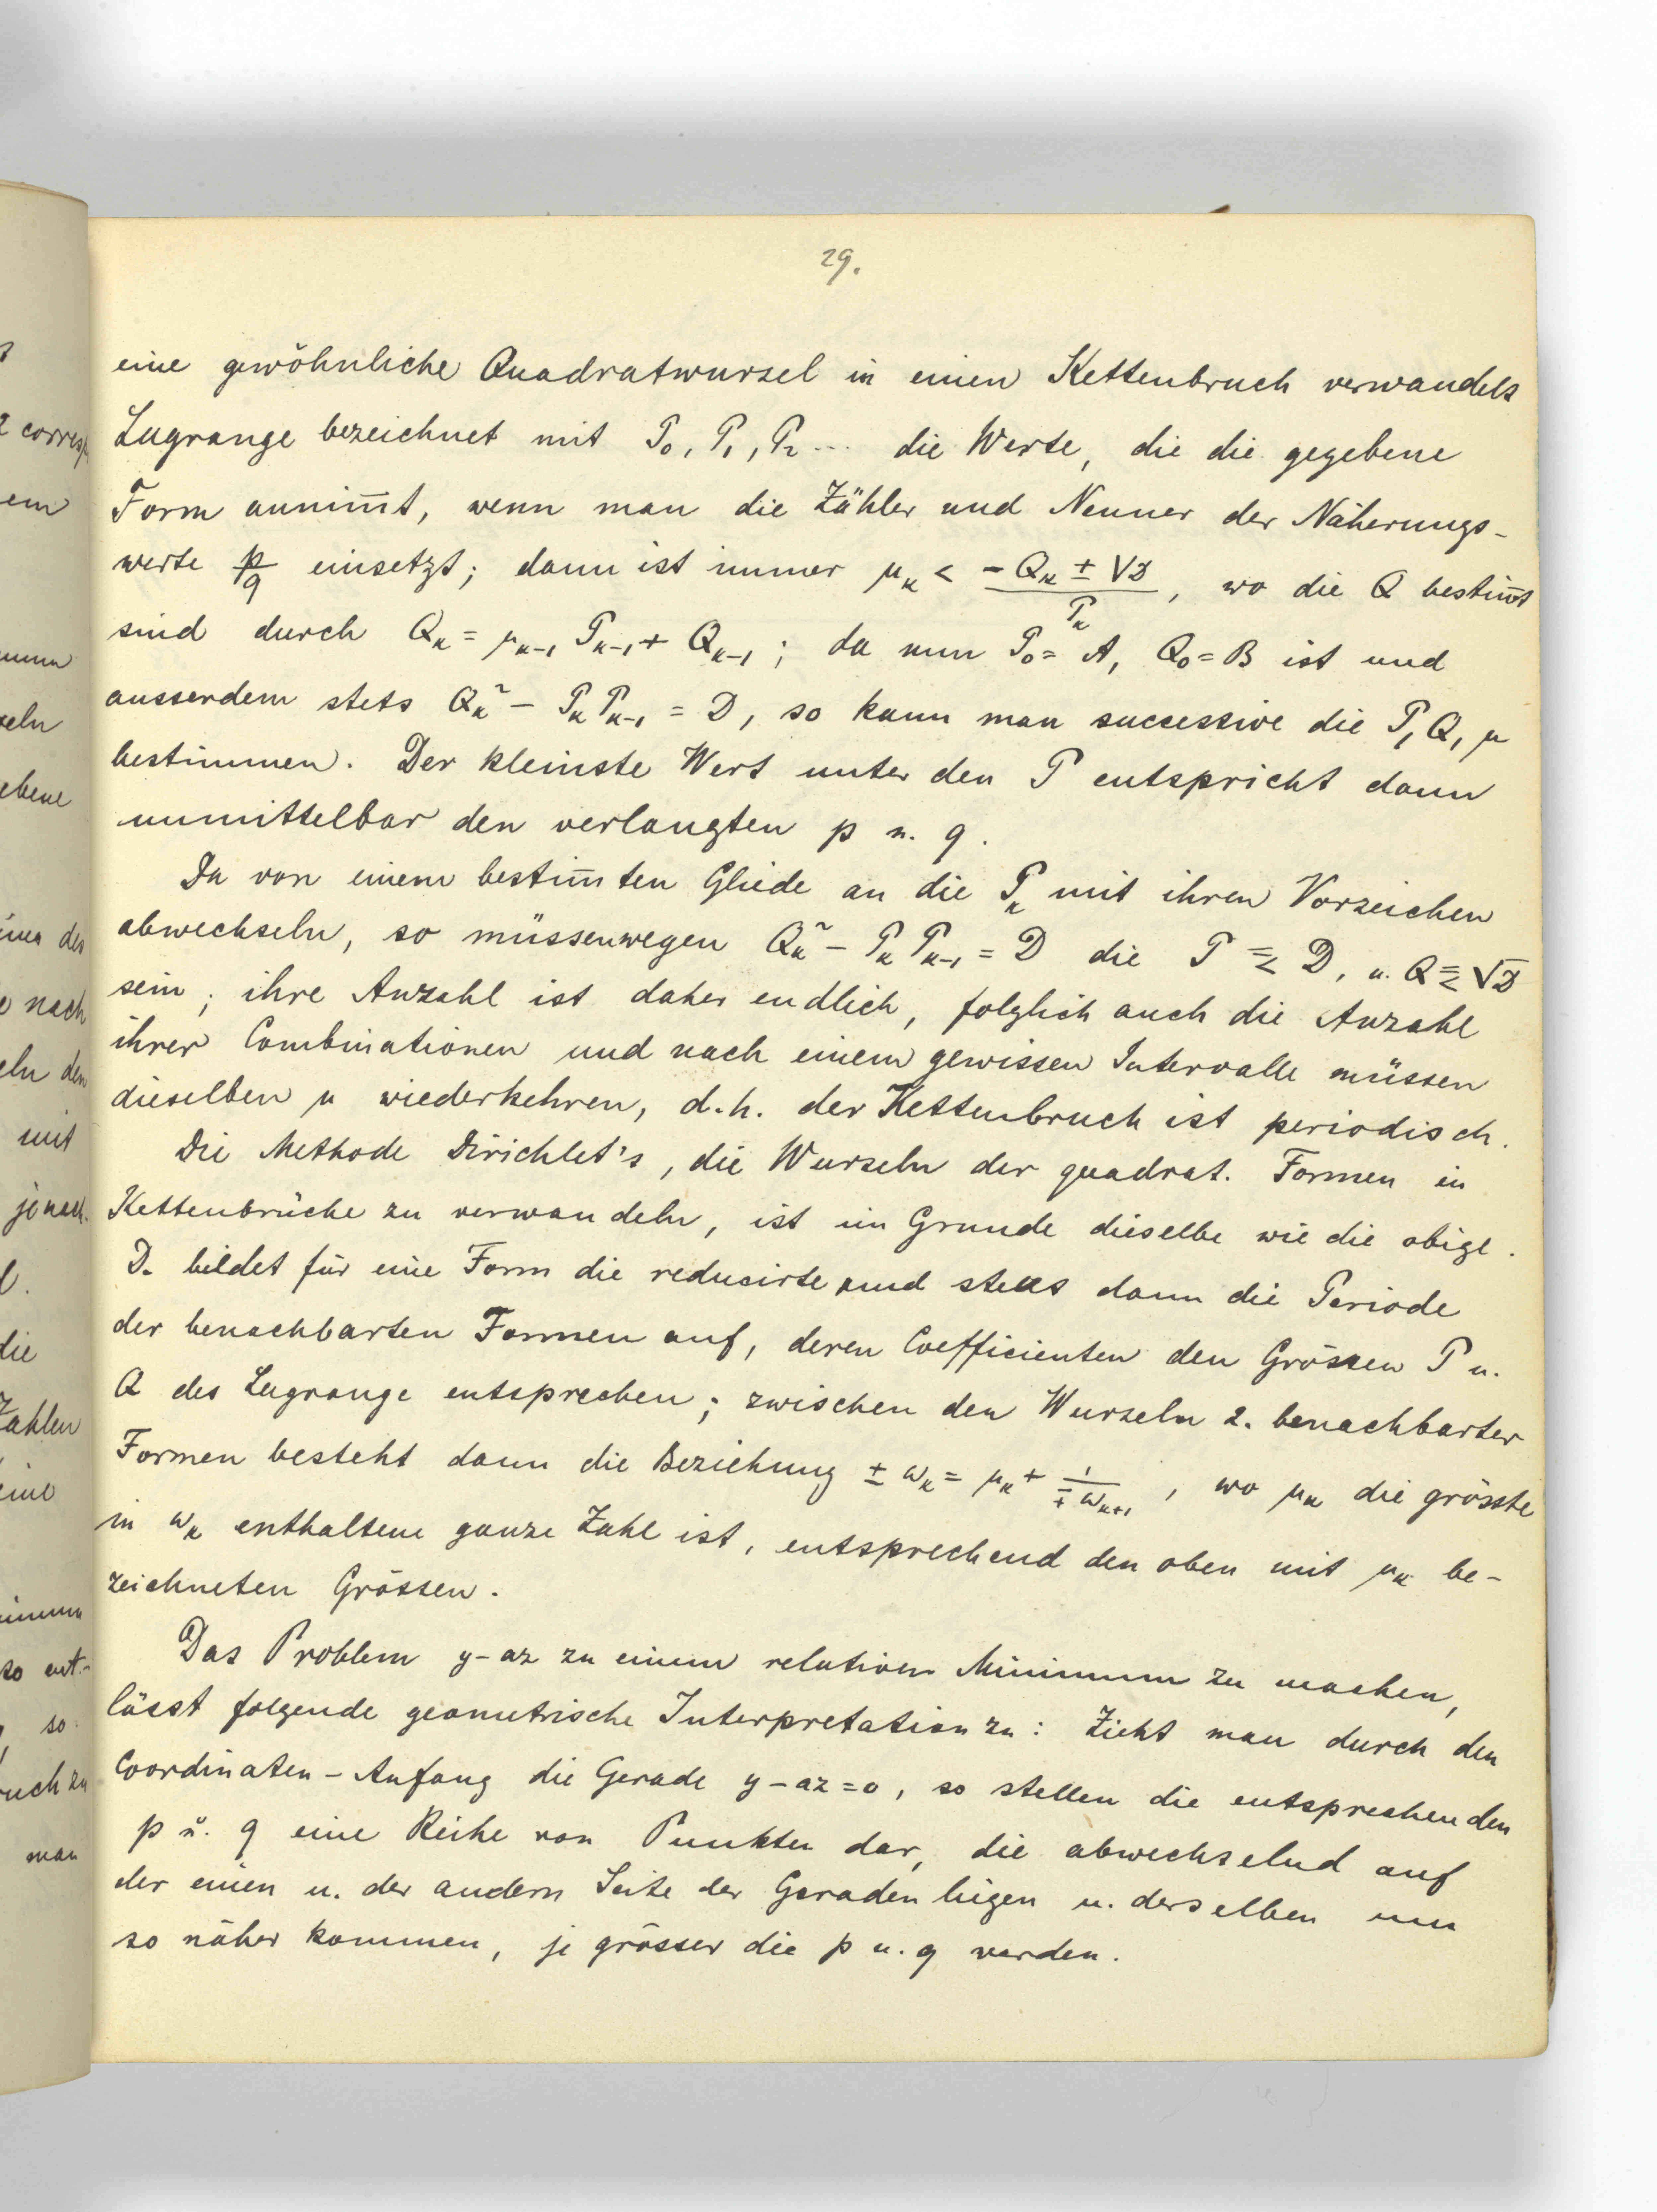 29.
eine gewöhnliche Quadratwurzel in einen Kettenbruch verwandelt
Lagrange bezeichnet mit P₀, P₁, P₂ ... die Werte, die die gegebene
Form annim̅t, wenn man die Zähler und Nenner der Näherungs-
werte p/q einsetzt; dann ist immer μₖ < (-Qₖ ± √D)/Pₖ, wo die Q bestim̅t
sind durch Qₖ = μₖ₋₁ Pₖ₋₁ + Qₖ₋₁; da nun P₀ = A, Q₀ = B ist und
ausserdem stets Qₖ² - Pₖ Pₖ₋₁ = D, so kann man successive die P, Q, μ
bestimmen. Der kleinste Wert unter den P entspricht dann
unmittelbar den verlangten p u. q.
Da von einem bestim̅ten Gliede an die Pₖ mit ihren Vorzeichen
abwechseln, so müssen wegen Qₖ² - Pₖ Pₖ₋₁ = D die P ≦ D, u. Q ≦ √D
sein; ihre Anzahl ist daher endlich, folglich auch die Anzahl
ihrer Combinationen und nach einem gewissen Intervalle müssen
dieselben μ wiederkehren, d.h. der Kettenbruch ist periodisch.
Die Methode Dirichlet's, die Wurzeln der quadrat. Formen in
Kettenbrüche zu verwandeln, ist im Grunde dieselbe wie die obige.
D. bildet für eine Form die reducirte und stellt dann die Periode
der benachbarten Formen auf, deren Coefficienten den Grössen P u.
Q des Lagrange entsprechen; zwischen den Wurzeln 2. benachbarter
Formen besteht dann die Beziehung ± ωₖ = μₖ + 1/(∓ ωₖ₊₁), wo μₖ die grösste
in ωₖ enthaltene ganze Zahl ist, entsprechend den oben mit μₖ be-
zeichneten Grössen.
Das Problem y - az zu einem relativen Minimum zu machen,
lässt folgende geometrische Interpretation zu: Zieht man durch den
Coordinaten-Anfang die Gerade y - az = 0, so stellen die entsprechenden
p u. q eine Reihe von Punkten dar, die abwechselnd auf
der einen u. der andern Seite der Geraden liegen u. derselben um
so näher kommen, je grösser die p u. q werden.